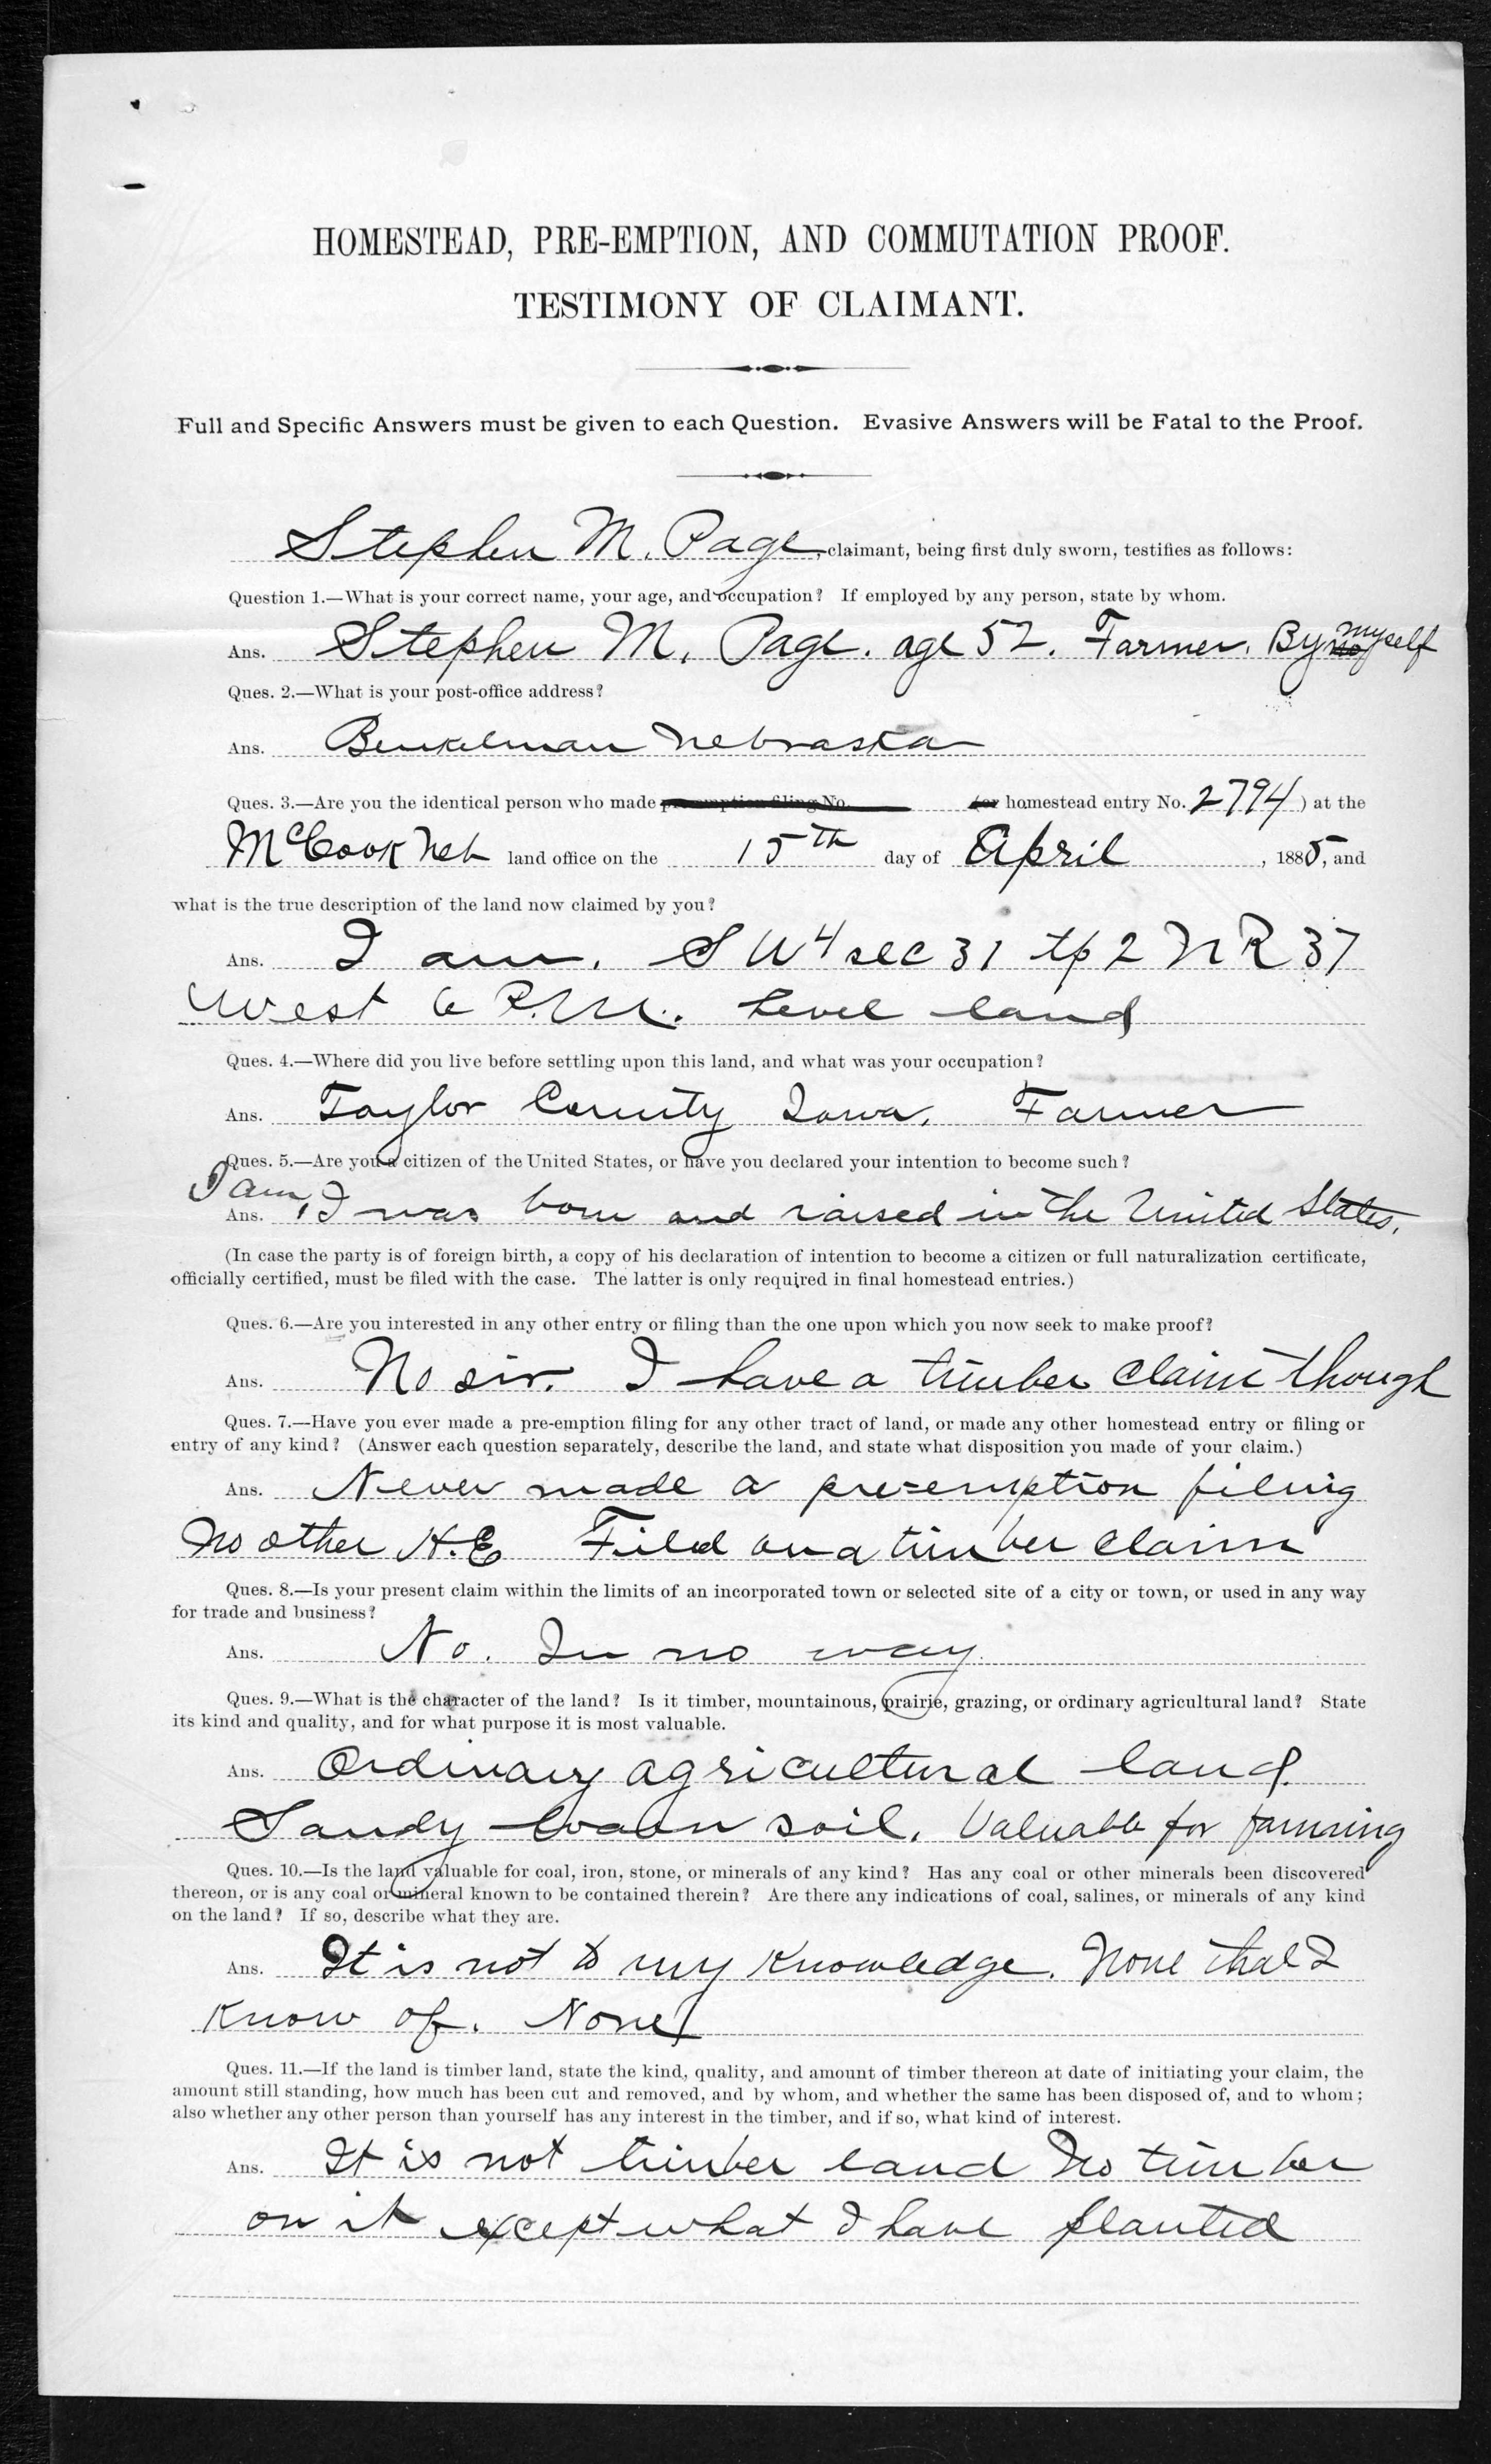 HOMESTEAD, PRE-EMPTION, AND COMMUTATION PROOF.
TESTIMONY OF CLAIMANT.
Full and Specific Answers must be given to each Question. Evasive Answers will be Fatal to the Proof.
Stephen M. Page, claimant, being first duly sworn, testifies as follows:
Question 1.—What is your correct name, your age, and occupation? If employed by any person, state by whom.
Ans. Stephen M. Page. age 52. Farmer. By myself
Ques. 2.—What is your post-office address?
Ans. Benkelman Nebraska
Ques. 3.—Are you the identical person who made pre-emption filing No. (or homestead entry No. 2794) at the
McCook Neb land office on the 15th day of April, 1885, and
what is the true description of the land now claimed by you?
Ans. I am. SW4 sec 31 tp 2 N R 37
West 6 P.M. Level land
Ques. 4.—Where did you live before settling upon this land, and what was your occupation?
Ans. Taylor County Iowa. Farmer
Ques. 5.—Are you a citizen of the United States, or have you declared your intention to become such?
I am,
Ans. I was born and raised in the United States.
(In case the party is of foreign birth, a copy of his declaration of intention to become a citizen or full naturalization certificate,
officially certified, must be filed with the case. The latter is only required in final homestead entries.)
Ques. 6.—Are you interested in any other entry or filing than the one upon which you now seek to make proof?
Ans. No sir. I have a timber claim though
Ques. 7.—Have you ever made a pre-emption filing for any other tract of land, or made any other homestead entry or filing or
entry of any kind? (Answer each question separately, describe the land, and state what disposition you made of your claim.)
Ans. Never made a pre=emption filing
No other H.E Filed on a timber claim
Ques. 8.—Is your present claim within the limits of an incorporated town or selected site of a city or town, or used in any way
for trade and business?
Ans. No. In no way
Ques. 9.—What is the character of the land? Is it timber, mountainous, prairie, grazing, or ordinary agricultural land? State
its kind and quality, and for what purpose it is most valuable.
Ans. Ordinary agricultural land.
Sandy loam soil. Valuable for farming
Ques. 10.—Is the land valuable for coal, iron, stone, or minerals of any kind? Has any coal or other minerals been discovered
thereon, or is any coal or mineral known to be contained therein? Are there any indications of coal, salines, or minerals of any kind
on the land? If so, describe what they are.
Ans. It is not to my knowledge. None that I
know of. None
Ques. 11.—If the land is timber land, state the kind, quality, and amount of timber thereon at date of initiating your claim, the
amount still standing, how much has been cut and removed, and by whom, and whether the same has been disposed of, and to whom;
also whether any other person than yourself has any interest in the timber, and if so, what kind of interest.
Ans. It is not timber land No timber
on it except what I have planted